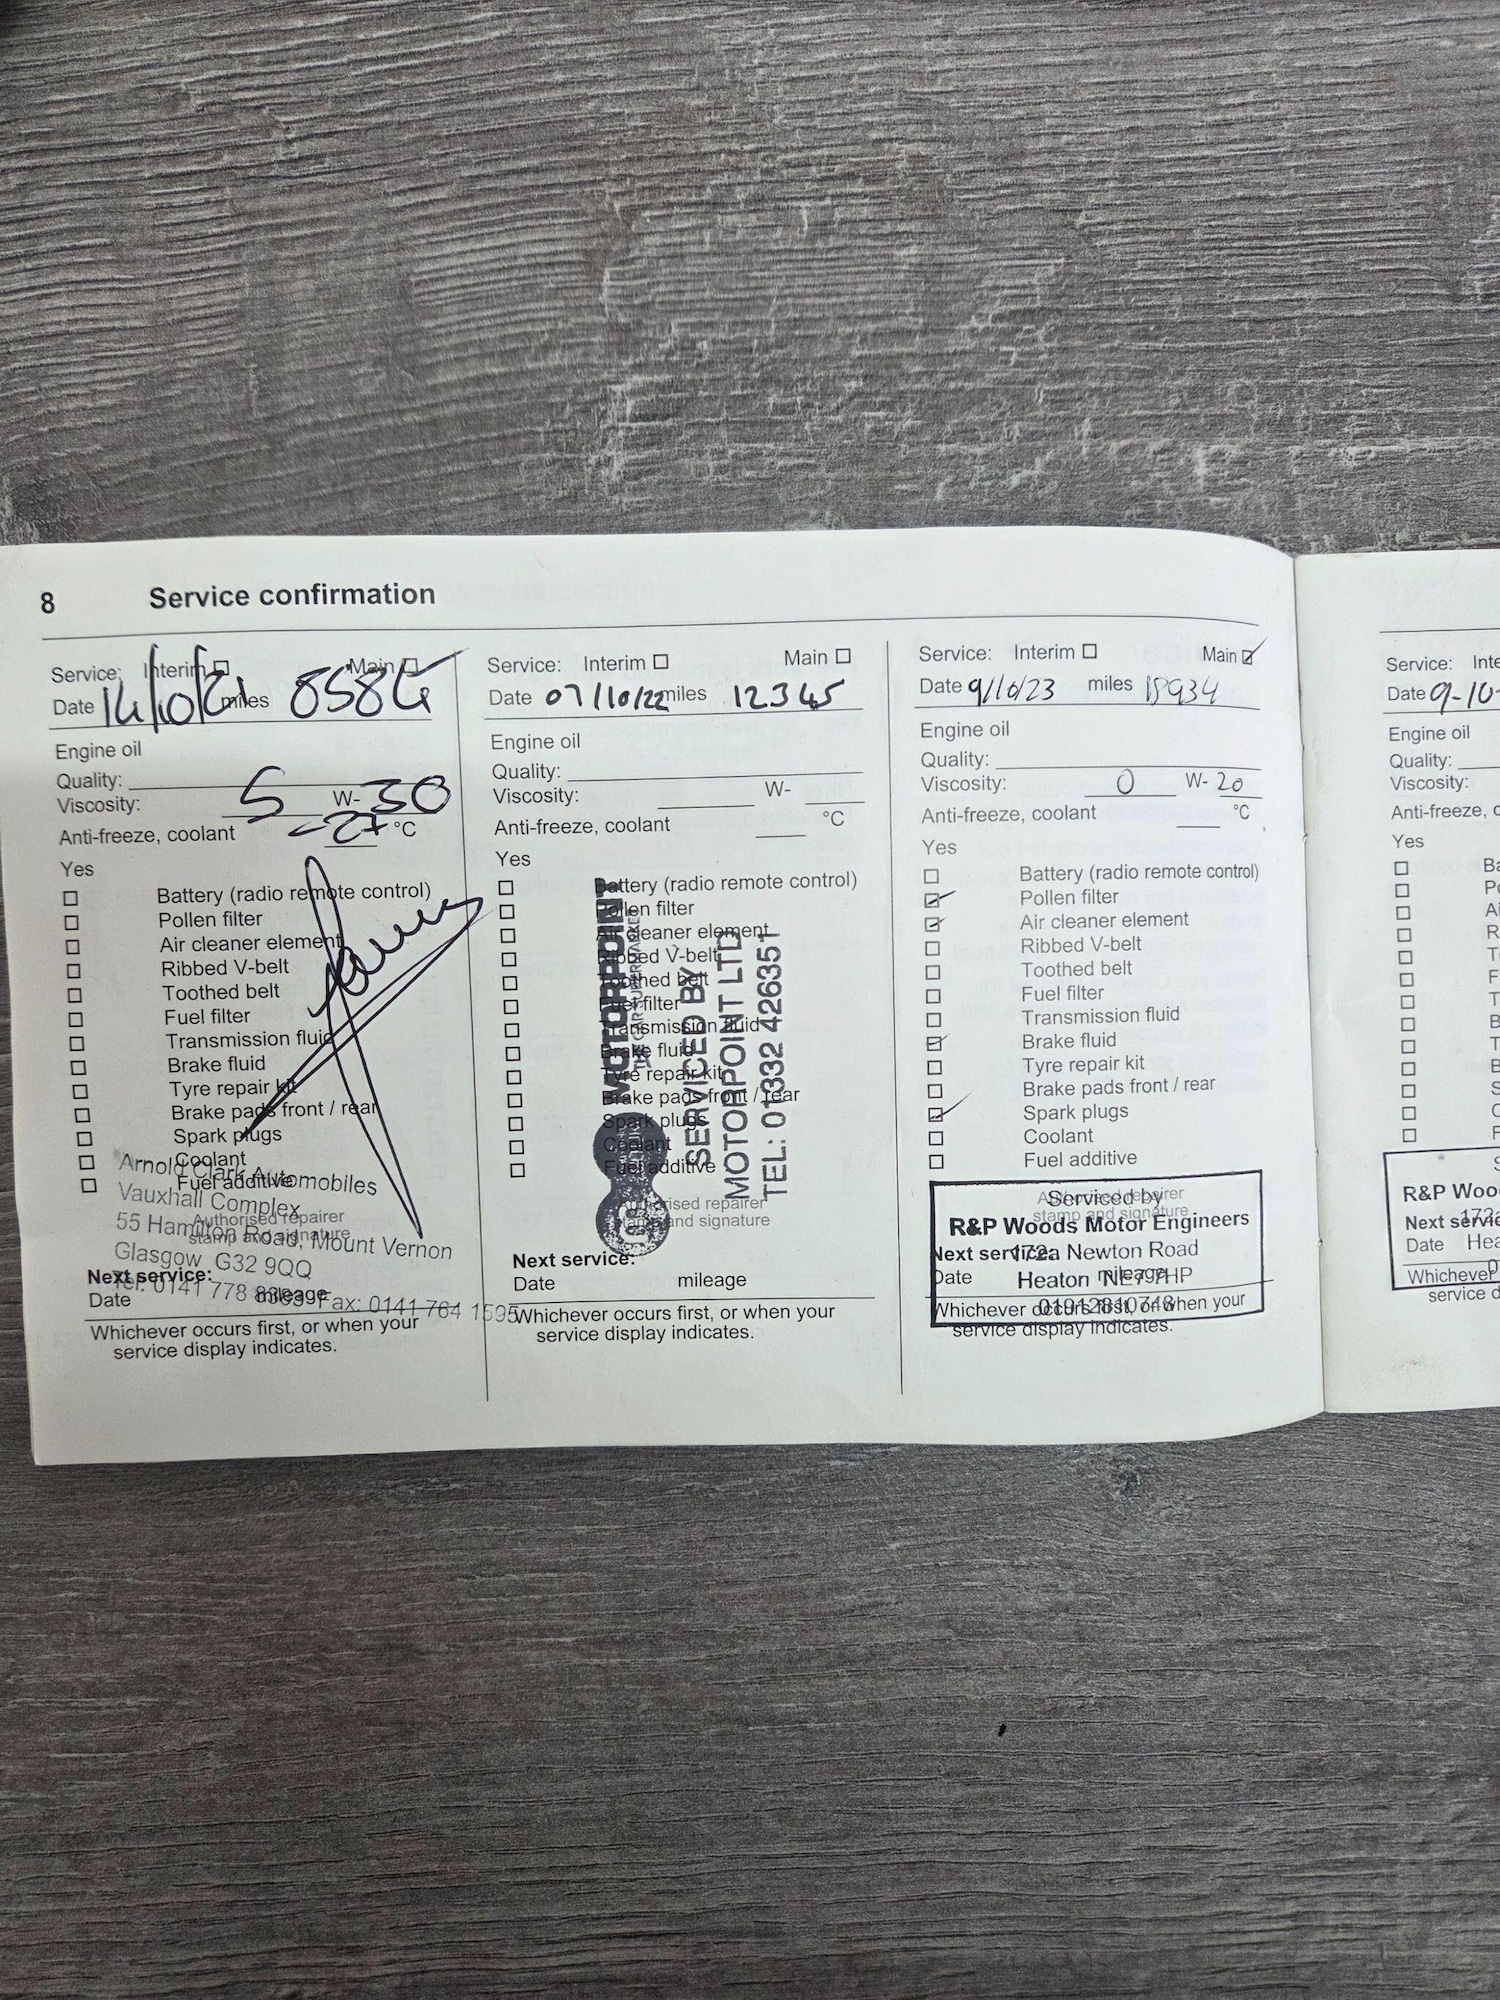 8 Service confirmation
Service: Interim Main
Date 14/10/21 miles 8584
Engine oil
Quality:
Viscosity: 5 W- 30
Anti-freeze, coolant -27 °C
Yes
Battery (radio remote control)
Pollen filter
Air cleaner element
Ribbed V-belt
Toothed belt
Fuel filter
Transmission fluid
Brake fluid
Tyre repair kit
Brake pads front / rear
Spark plugs
Coolant
Fuel additive
Arnold Clark Automobiles
Vauxhall Complex
55 Hamilton Road, Mount Vernon
Glasgow G32 9QQ
Tel: 0141 778 Fax: 0141 764 1595
Authorised repairer
stamp and signature
Next service:
Date mileage
Whichever occurs first, or when your
service display indicates.
Service: Interim Main
Date 07/10/22 miles 12345
Engine oil
Quality:
Viscosity: W-
Anti-freeze, coolant °C
Yes
Battery (radio remote control)
Pollen filter
Air cleaner element
Ribbed V-belt
Toothed belt
Fuel filter
Transmission fluid
Brake fluid
Tyre repair kit
Brake pads front / rear
Spark plugs
Coolant
Fuel additive
MOTORPOINT
THE CAR SUPERMARKET
SERVICED BY
MOTORPOINT LTD
TEL: 01332 426351
Authorised repairer
stamp and signature
Next service:
Date mileage
Whichever occurs first, or when your
service display indicates.
Service: Interim Main
Date 9/10/23 miles 18934
Engine oil
Quality:
Viscosity: 0 W- 20
Anti-freeze, coolant °C
Yes
Battery (radio remote control)
Pollen filter
Air cleaner element
Ribbed V-belt
Toothed belt
Fuel filter
Transmission fluid
Brake fluid
Tyre repair kit
Brake pads front / rear
Spark plugs
Coolant
Fuel additive
Authorised repairer
stamp and signature
Serviced by
R&P Woods Motor Engineers
172a Newton Road
Heaton NE7 7HP
Next service:
Date mileage
Whichever occurs first, or when your
service display indicates.
Service: Inte
Date 9-10-
Engine oil
Quality:
Viscosity:
Anti-freeze, c
Yes
Ba
Po
Ai
R
T
F
T
B
T
B
S
C
F
S
R&P Woo
172a
Next service
Date Hea
Whichever
service d